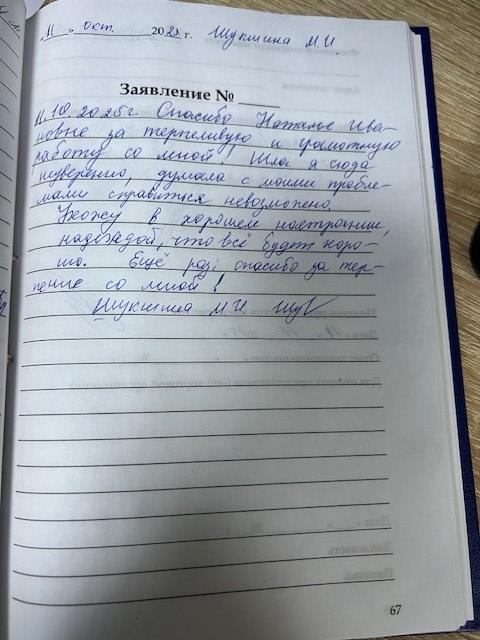 „11" окт. 2025 г. Шукшина М.И.
Заявление №
11.10.2025г. Спасибо Наталье Ива-
новне за терпеливую и грамотную
работу со мной! Шла я сюда
неуверенно, думала с моими пробле-
мами справиться невозможно.
Ухожу в хорошем настроении,
надеждой, что всё будет хоро-
шо. Ещё раз, спасибо за тер-
пение со мной!
Шукшина М И
67